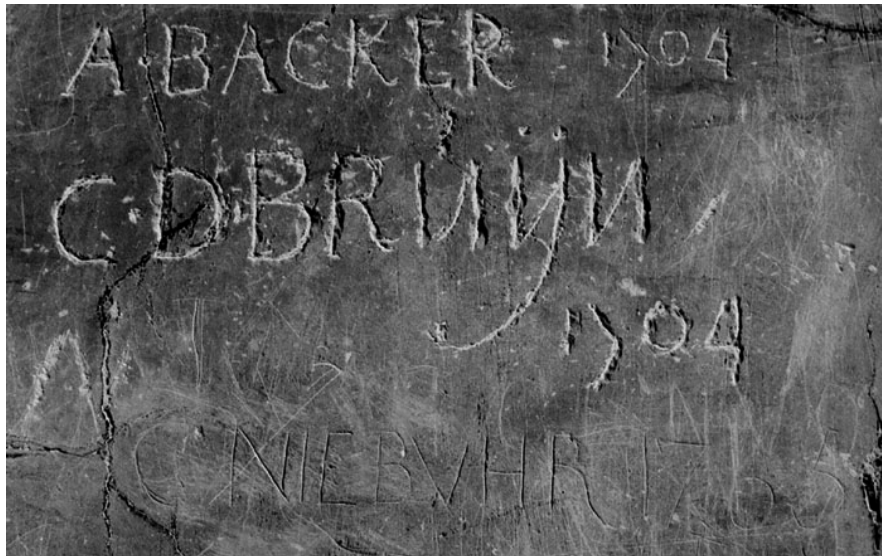 A·BACKER 1704
C·D·BRuijn
1704
C NIEBVHR 1765